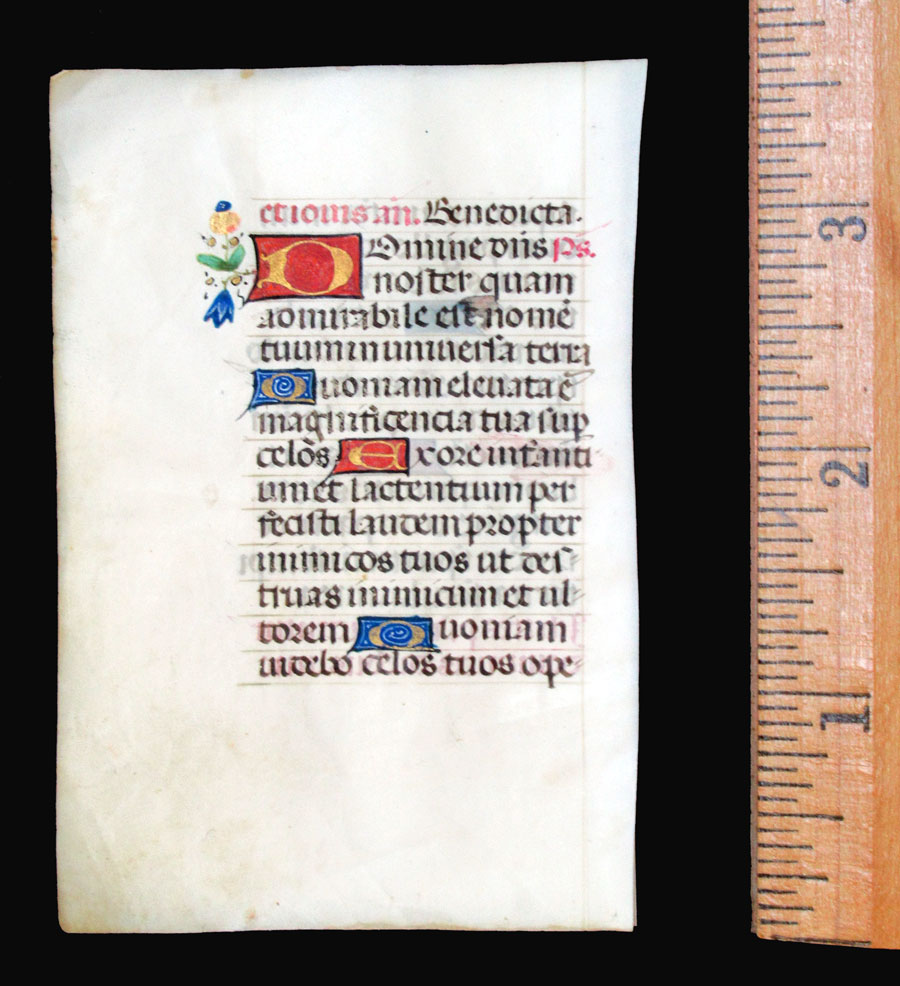 et iovis añ. Benedicta.
D Omine dn̄s Ps.
noster quam
admirabile est nomē
tuum in universa terra
Quoniam elevata ē
magnificencia tua sup
celos Ex ore infanti
um et lactentium per
fecisti laudem propter
inimicos tuos ut des-
truas inimicum et ul-
torem Quoniam
videbo celos tuos ope-
3
2
1